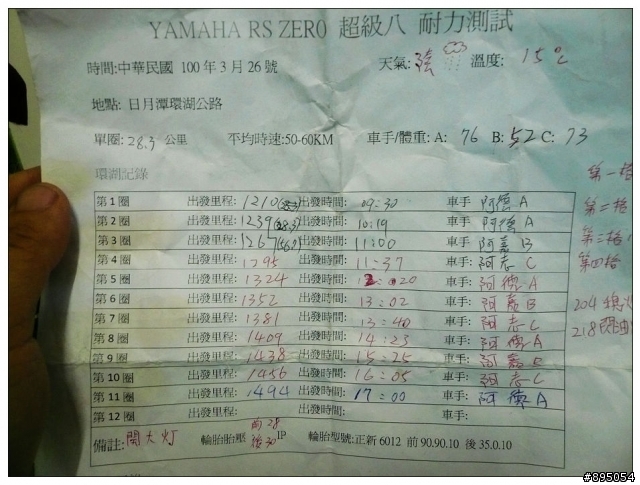 YAMAHA RS ZERO 超級八 耐力測試
時間:中華民國 100 年 3 月 26 號 天氣: 溫度: 15℃
地點: 日月潭環湖公路
單圈: 28.3 公里 平均時速:50-60KM 車手/體重: A: 76 B: 52 C: 73
環湖記錄
第一格
第 1 圈 出發里程: 1210(28.3) 出發時間: 09:30 車手 阿德 A
第二格
第 2 圈 出發里程: 1239(28.3) 出發時間: 10:19 車手 阿德 A
第三格
第 3 圈 出發里程: 1267(56.7) 出發時間: 11:00 車手: 阿嘉 B
第四格
第 4 圈 出發里程: 1295 出發時間: 11:37 車手: 阿志 C
第 5 圈 出發里程: 1324 出發時間: 車手: 阿德 A
第 6 圈 出發里程: 1352 出發時間: 13:02 車手: 阿嘉 B
204
第 7 圈 出發里程: 1381 出發時間: 13:40 車手: 阿志 C
218
第 8 圈 出發里程: 1409 出發時間: 14:23 車手: 阿德 A
第 9 圈 出發里程: 1438 出發時間: 15:25 車手: 阿嘉 B
第 10 圈 出發里程: 1466 出發時間: 16:05 車手: 阿志 C
第 11 圈 出發里程: 1494 出發時間: 17:00 車手: 阿德 A
第 12 圈 出發里程: 出發時間: 車手:
備註: 開大灯 輪胎胎壓 前28 後30 IP 輪胎型號:正新 6012 前 90.90.10 後 35.0.10
#895054